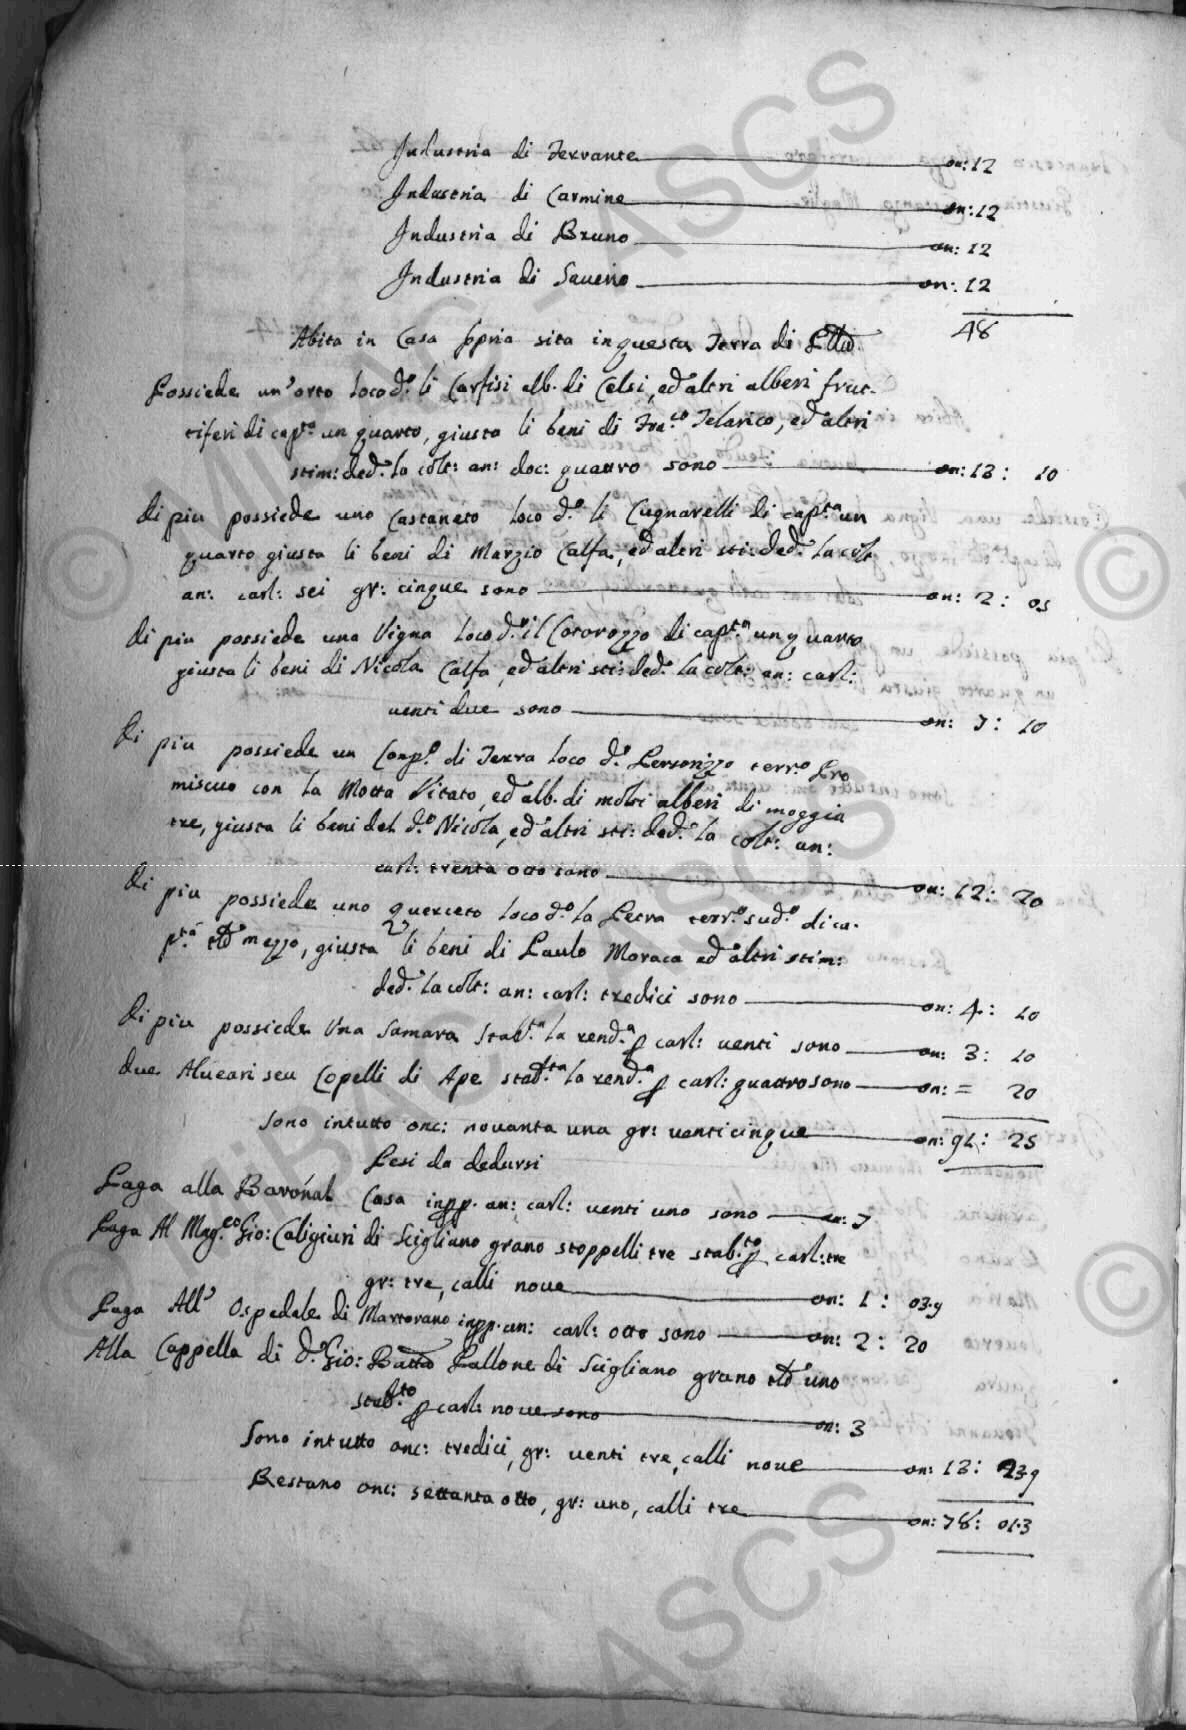 Industria di Ferrante on: 12
Industria di Carmine on: 12
Industria di Bruno on: 12
Industria di Saverio on: 12
48
Abita in Casa ppria sita in questa Terra di
Possiede un'orto loco d.o li Carfisi alb. di Celsi, ed'altri alberi frut-
tiferi di cap.ta un quarto, giusta li beni di Fra.co Telarico, ed'altri
stim: ded.a la colt: an: doc: quattro sono on: 13: 10
Di piu possiede uno Castaneto loco d.o li Cugnarelli di cap.ta un
quarto giusta li beni di Marzio Calfa, ed'altri sti: ded.a la colt
an: carl: sei gr: cinque sono on: 2: 05
Di piu possiede una Vigna loco d.o il Cotorozzo di cap.ta un quarto
giusta li beni di Nicola Calfa, ed'altri sti: ded.a la colt: an: carl:
venti due sono on: 7: 10
Di piu possiede un Comp.o di Terra loco d.o Personizzo terr.o Pro
miscuo con la Motta S Vitato, ed'alb. di molti alberi di moggia
tre, giusta li beni del d.o Nicola, ed'altri sti: ded.a la colt: an:
carl: trenta otto sono on: 12: 20
Di piu possiede uno querceto loco d.o la Petra terr.o sud.o di ca-
p.tà mezzo, giusta li beni di Paulo Moraca ed'altri stim:
ded.a la colt: an: carl: tredici sono on: 4: 10
Di piu possiede una Samara stab.ta la rend.a p carl: venti sono on: 3: 10
due Alveari seu Copelli di Ape stab.ta la rend.a p carl: quattro sono on: = 20
Sono in tutto onc: novanta una gr: venticinque on: 91: 25
Pesi da dedursi
Paga alla Baronal Casa in pp. an: carl: venti uno sono on: 7
Paga Al Mag.co Gio: Caligiuri di Scigliano grano stoppelli tre stab.to p carl: tre
gr: tre, calli nove on: 1: 03.9
Paga All' Ospedale di Martorano in pp. an: carl: otto sono on: 2: 20
Alla Cappella di d. Gio: Batta Pallone di Scigliano grano uno
stab.to p carl: nove sono on: 3
Sono in tutto onc: tredici, gr: venti tre, calli nove on: 13: 23.9
Restano onc: settanta otto, gr: uno, calli tre on: 78: 01.3
© MiBAC - ASCS
© MiBAC - ASCS
©
©
ASCS